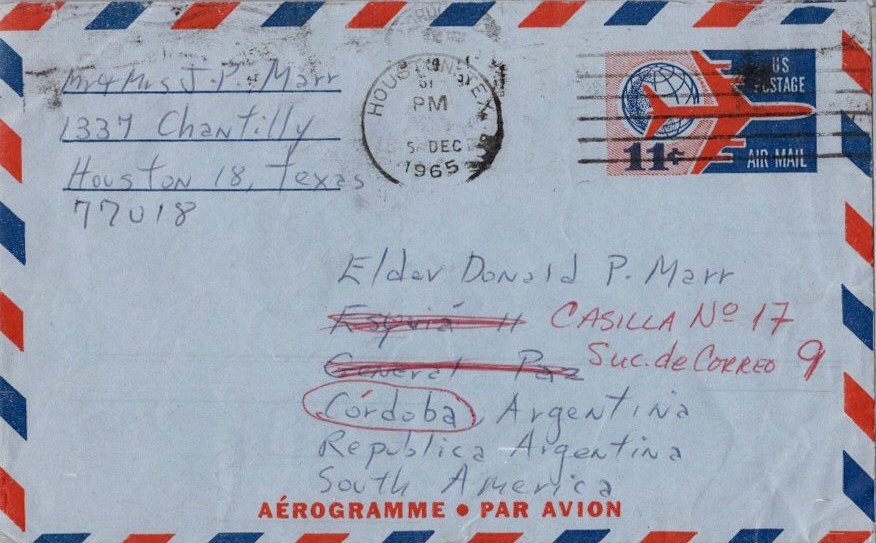 Mr & Mrs J. P. Marr
1337 Chantilly
Houston 18, Texas
77018
HOUSTON, TEX.
PM
5 DEC
1965
US
POSTAGE
11¢
AIR MAIL
Elder Donald P. Marr
Esquiá 11 CASILLA Nº 17
General Paz Suc. de CORREO 9
Córdoba, Argentina
Republica Argentina
South America
AÉROGRAMME • PAR AVION